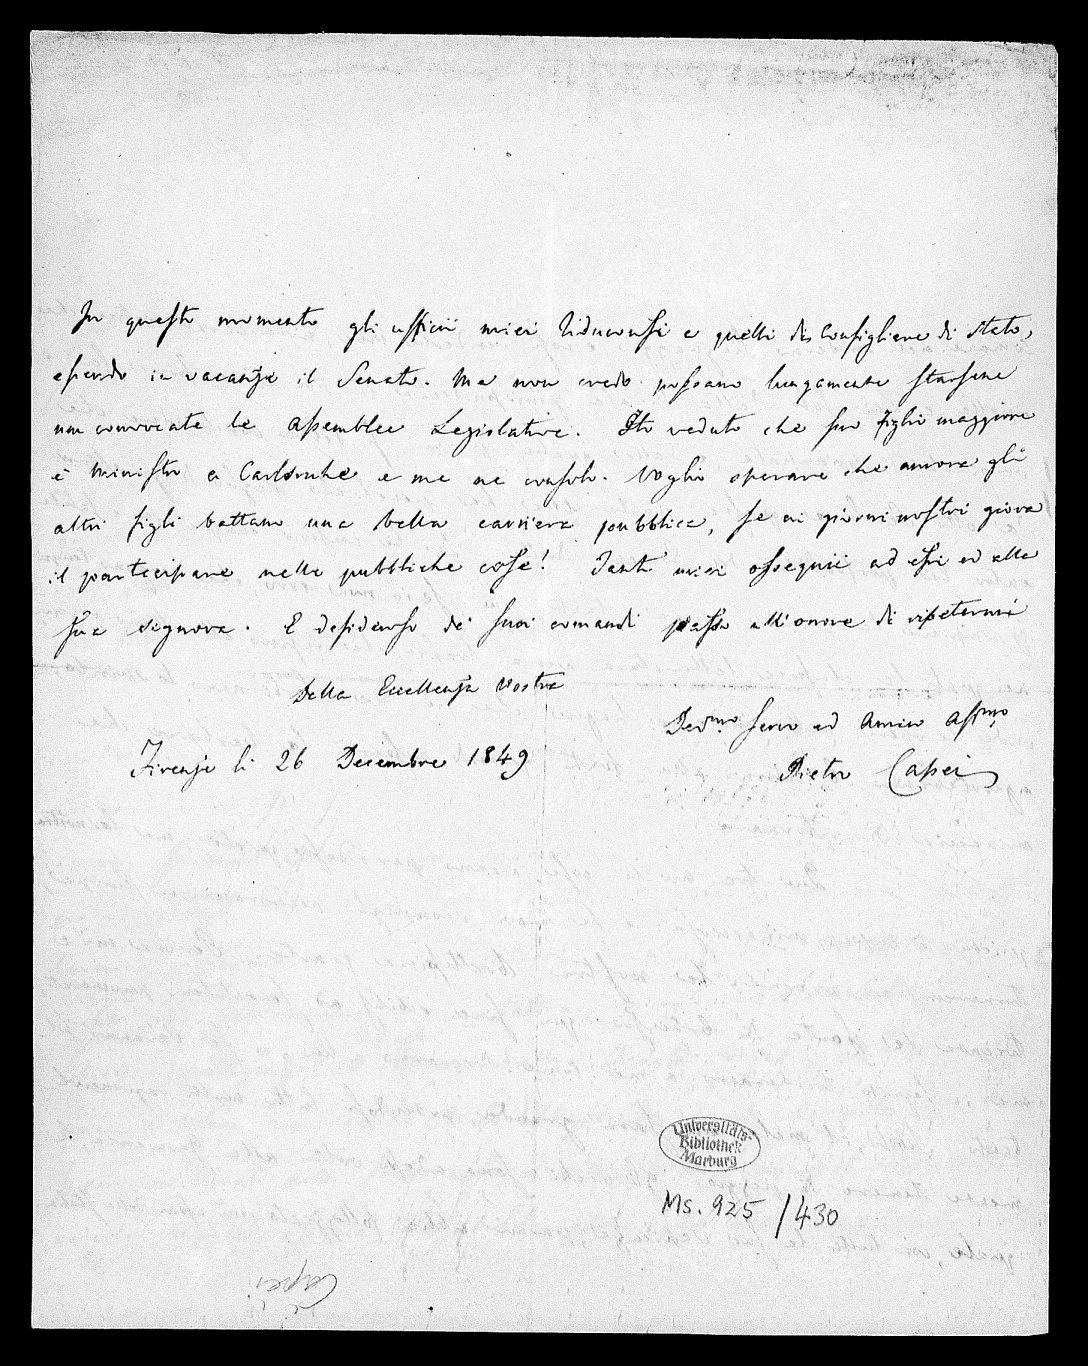 In questo momento gli ufficii miei riduconsi a quelli di Consigliere di Stato,
essendo in vacanze il Senato. Ma non credo possano lungamente starsene
non convocate le assemblee Legislative. Ho veduto che suo figlio maggiore
è Ministro a Carlsruhe e me ne consolo. Voglio sperare che ancora gli
altri figli battano una bella carriera pubblica, se ai giorni nostri giova
il partecipare nelle pubbliche cose! Tanti miei ossequii ad essi ed alla
sua signora. E desideroso de' suoi comandi passo all'onore di ripetermi
Della Eccellenza Vostra
Dev.mo servo ed Amico Aff.mo
Firenze li 26 Decembre 1849
Pietro Capei
Universitäts-
Bibliothek
Marburg
Ms. 925 / 430
Capei